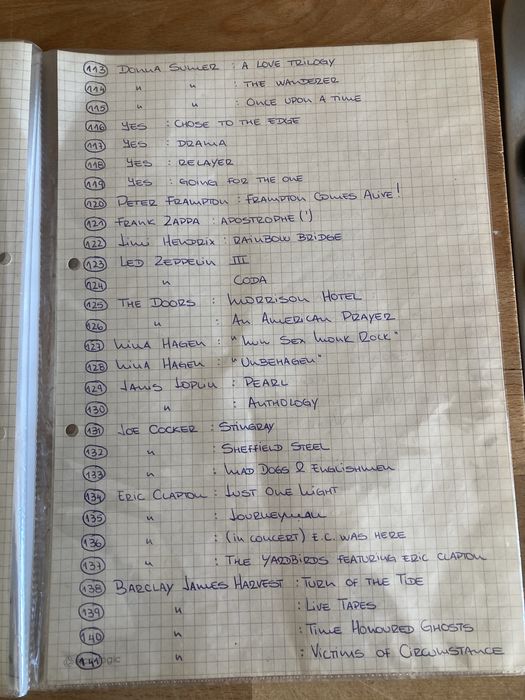 113 DONNA SUMER : A LOVE TRILOGY
114 " " : THE WANDERER
115 " " : ONCE UPON A TIME
116 YES : CHOSE TO THE EDGE
117 YES : DRAMA
118 YES : RELAYER
119 YES : GOING FOR THE ONE
120 PETER FRAMPTON : FRAMPTON COMES ALIVE!
121 FRANK ZAPPA : APOSTROPHE (')
122 JIMI HENDRIX : RAINBOW BRIDGE
123 LED ZEPPELIN III
124 " CODA
125 THE DOORS : MORRISON HOTEL
126 " : AN AMERICAN PRAYER
127 NINA HAGEN : "NUN SEX MONK ROCK"
128 NINA HAGEN : "UNBEHAGEN"
129 JANIS JOPLIN : PEARL
130 " : ANTHOLOGY
131 JOE COCKER : STINGRAY
132 " : SHEFFIELD STEEL
133 " : MAD DOGS & ENGLISHMEN
134 ERIC CLAPTON : JUST ONE NIGHT
135 " : JOURNEYMAN
136 " : (IN CONCERT) E.C. WAS HERE
137 " : THE YARDBIRDS FEATURING ERIC CLAPTON
138 BARCLAY JAMES HARVEST : TURN OF THE TIDE
139 " : LIVE TAPES
140 " : TIME HONOURED GHOSTS
141 " : VICTIMS OF CIRCUMSTANCE